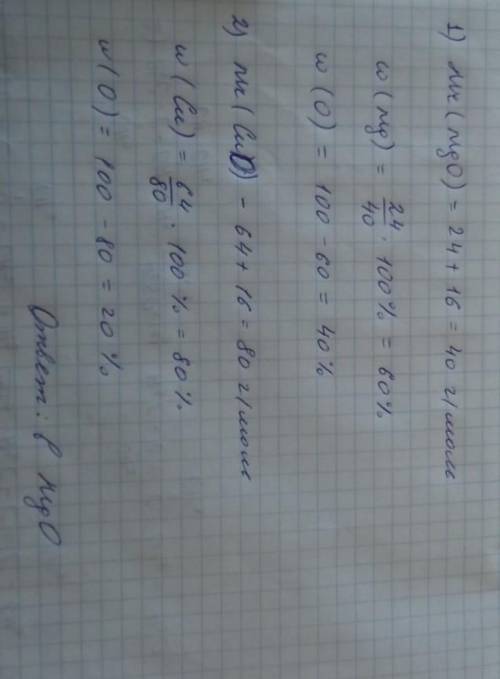 1) Mr(MgO) = 24 + 16 = 40 г/моль
w(Mg) = 24/40 · 100% = 60%
w(O) = 100 - 60 = 40%
2) Mr(CuO) - 64 + 16 = 80 г/моль
w(Cu) = 64/80 · 100% = 80%
w(O) = 100 - 80 = 20%
Ответ: в MgO